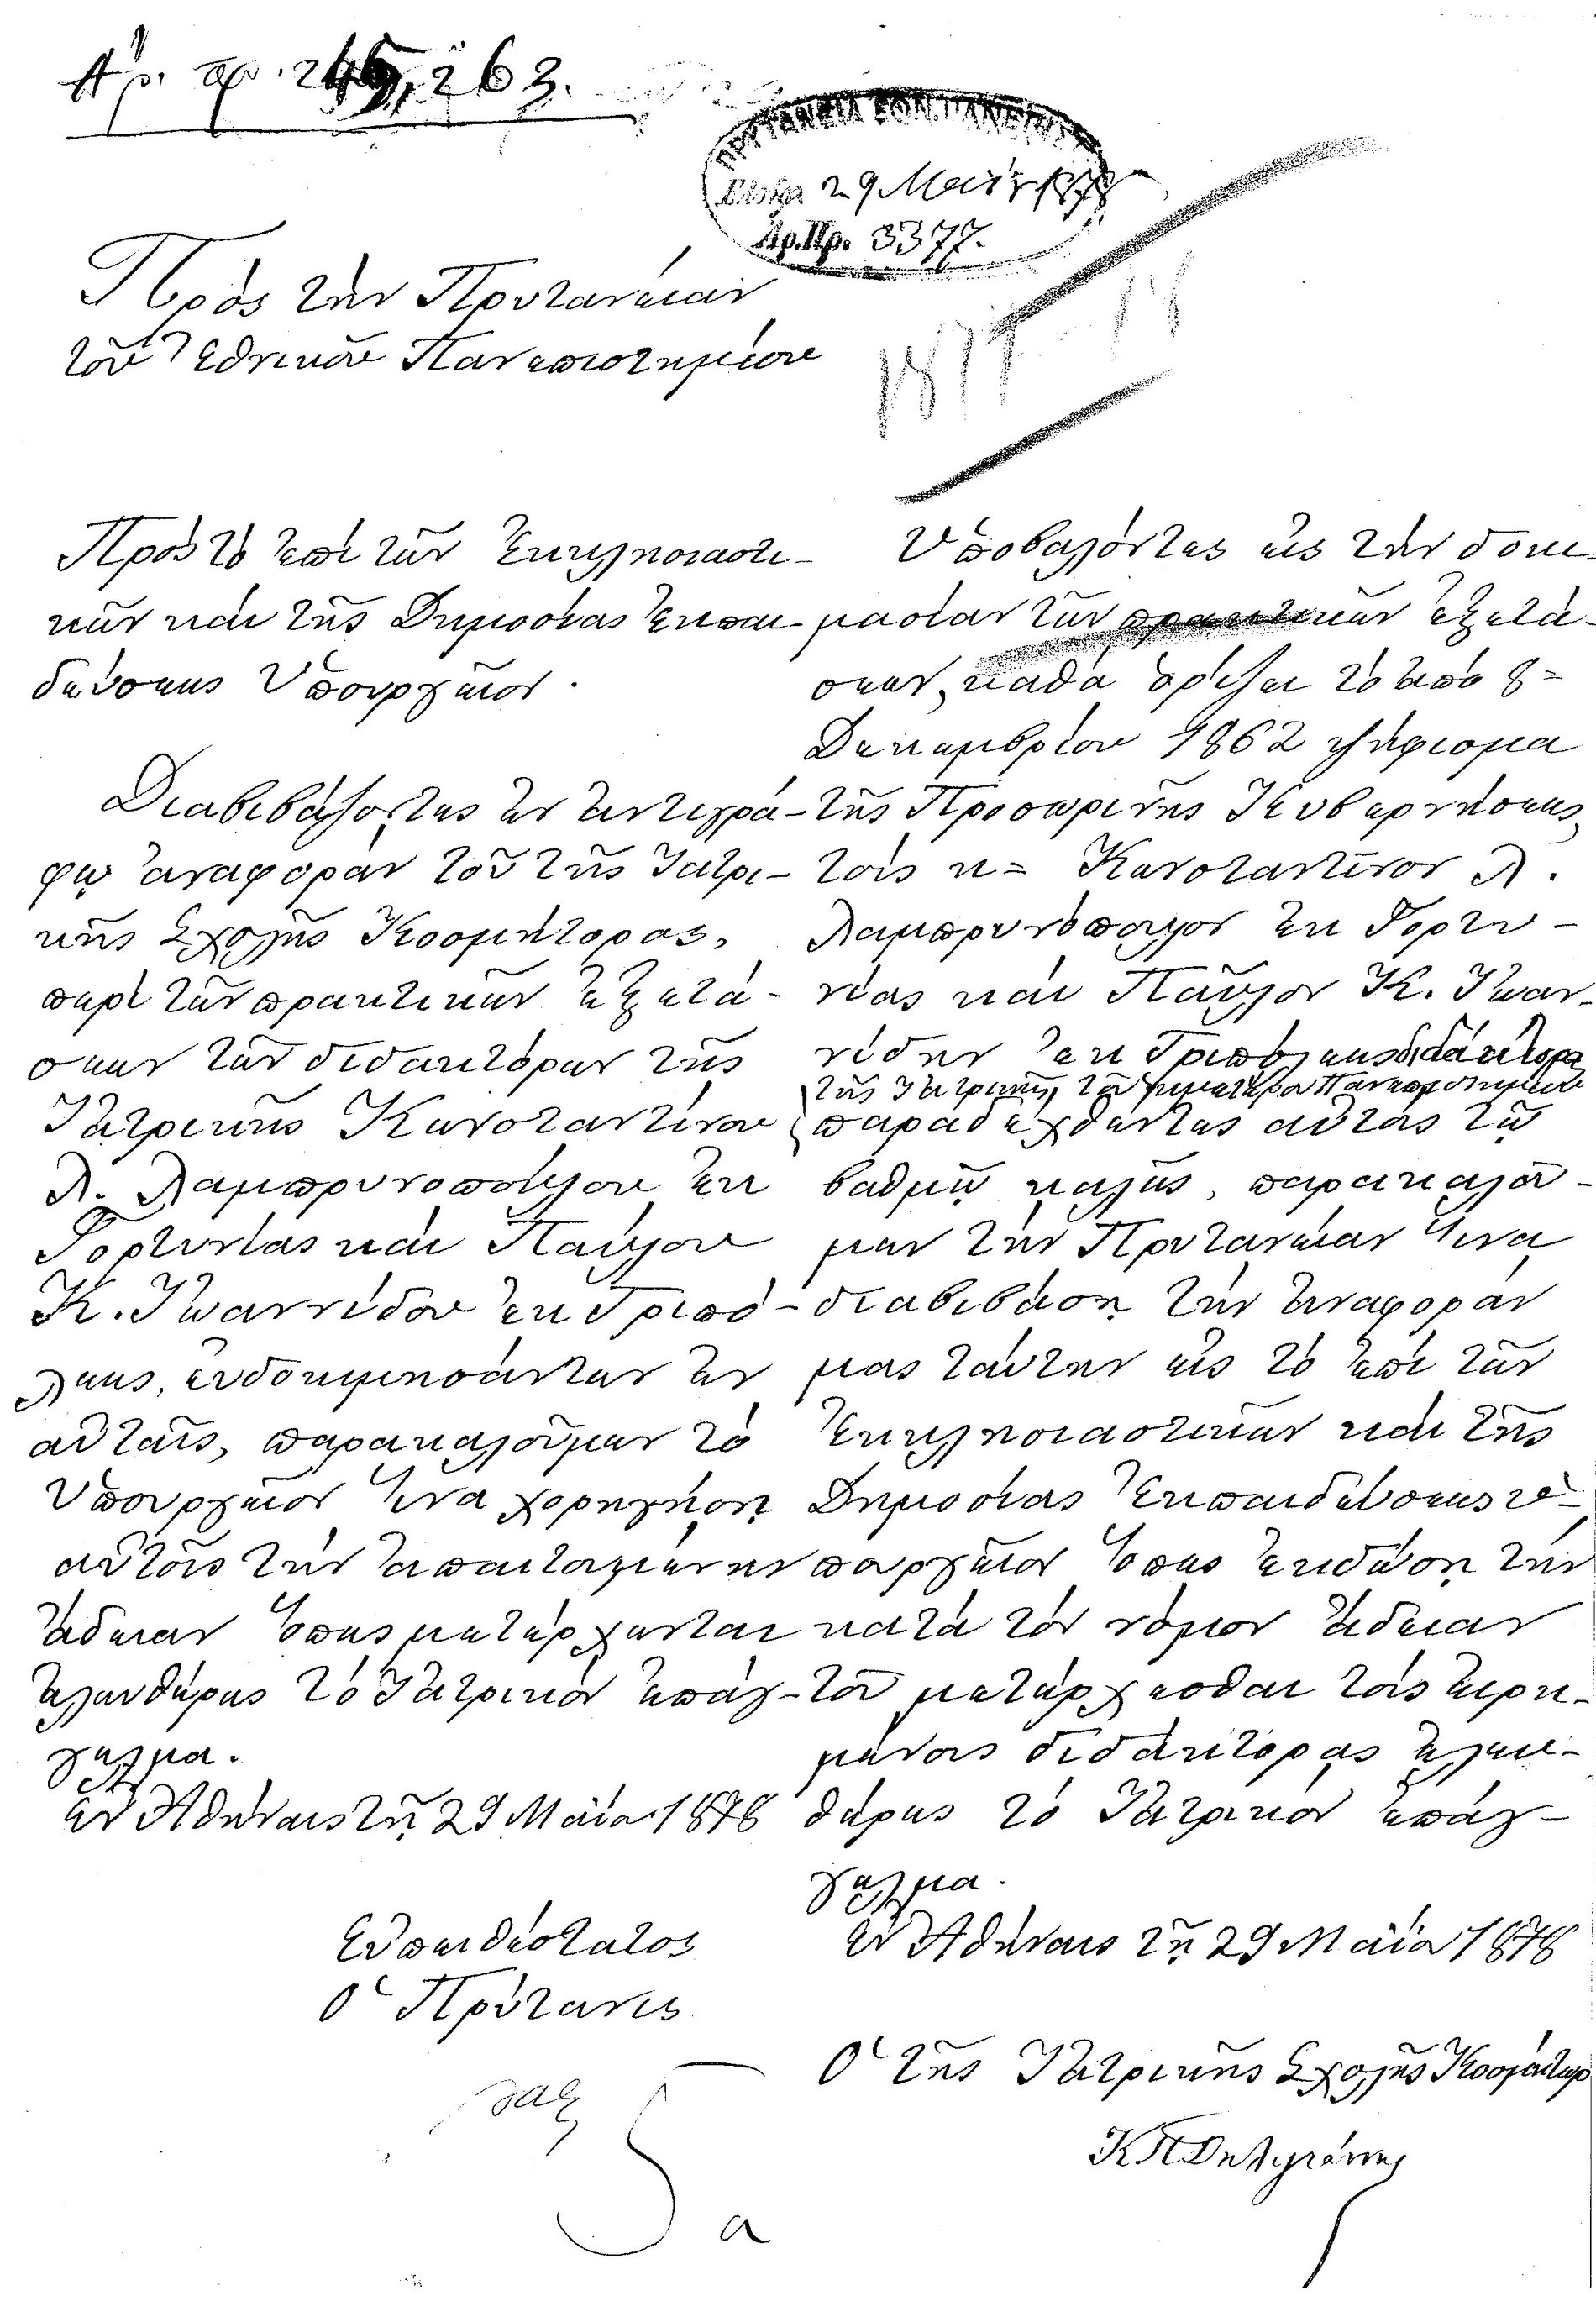 Ἀρ. πρ. 245, 263.
ΠΡΥΤΑΝΕΙΑ ΕΘΝ. ΠΑΝΕΠΙΣΤ
29 Μαΐου 1878
Ἀρ. Πρ. 3377.
1877 - 78
Πρὸς τὴν Πρυτανείαν
τοῦ Ἐθνικοῦ Πανεπιστημίου
Πρὸς τὸ ἐπὶ τῶν Ἐκκλησιαστι-
κῶν καὶ τῆς Δημοσίας Ἐκπαι-
δεύσεως Ὑπουργεῖον.
Διαβιβάζοντες ἐν ἀντιγρά-
φῳ ἀναφορὰν τοῦ τῆς Ἰατρι-
κῆς Σχολῆς Κοσμήτορος,
περὶ τῶν πρακτικῶν ἐξετά-
σεων τῶν διδακτόρων τῆς
Ἰατρικῆς Κωνσταντίνου
Λ. Λαμπρυνοπούλου ἐκ
Γορτυνίας καὶ Παύλου
Κ. Ἰωαννίδου ἐκ Τριπό-
λεως, εὐδοκιμησάντων ἐν
αὐταῖς, παρακαλοῦμεν τὸ
Ὑπουργεῖον ἵνα χορηγήσῃ
αὐτοῖς τὴν ἀπαιτουμένην
ἄδειαν ὅπως μετέρχωνται
ἐλευθέρως τὸ Ἰατρικὸν ἐπάγ-
γελμα.
Ἐν Ἀθήναις τῇ 29 Μαΐου 1878
Εὐπειθέστατος
Ὁ Πρύτανις
Ὑποβαλόντες εἰς τὴν δοκι-
μασίαν τῶν πρακτικῶν ἐξετά-
σεων, καθὰ ὁρίζει τὸ ἀπὸ 8=
Δεκεμβρίου 1862 ψήφισμα
τῆς Προσωρινῆς Κυβερνήσεως,
τοὺς κ= Κωνσταντῖνον Λ.
Λαμπρυνόπουλον ἐκ Γορτυ-
νίας καὶ Παῦλον Κ. Ἰωαν-
νίδην ἐκ Τριπόλεως διδάκτορα
τῆς Ἰατρικῆς τοῦ ἡμετέρου Πανεπιστημίου
παραδεχθέντας αὐτοὺς τῷ
βαθμῷ καλῶς, παρακαλοῦ-
μεν τὴν Πρυτανείαν ἵνα
διαβιβάσῃ τὴν ἀναφοράν
μας ταύτην εἰς τὸ ἐπὶ τῶν
Ἐκκλησιαστικῶν καὶ τῆς
Δημοσίας Ἐκπαιδεύσεως ὑ-
πουργεῖον ὅπως ἐκδώσῃ τὴν
κατὰ τὸν νόμον ἄδειαν
τοῦ μετέρχεσθαι τοὺς εἰρη-
μένους διδάκτορας ἐλευ-
θέρως τὸ Ἰατρικὸν ἐπάγ-
γελμα.
Ἐν Ἀθήναις τῇ 29 Μαΐου 1878
Ὁ τῆς Ἰατρικῆς Σχολῆς Κοσμήτωρ
Κ Π Δηλιγιάννης